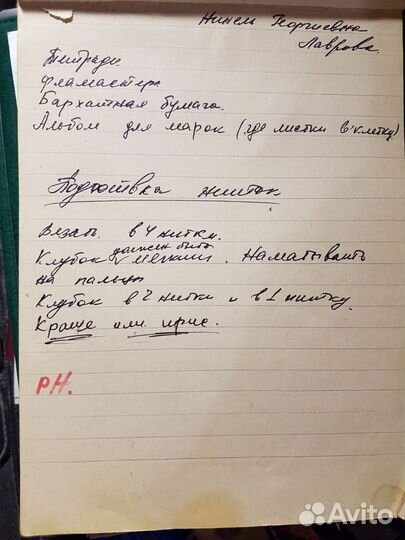 Нинель Георгиевна
Лаврова.
Тетради
Фламастеры
Бархатная бумага.
Альбом для марок (где листки в клетку)
Подготовка ниток
Вязать в 4 нитки.
Клубок должен быть мягкий. Наматывать
на пальцы
Клубок в 2 нитки и в 1 нитку.
или ирис.
РН.
Avito